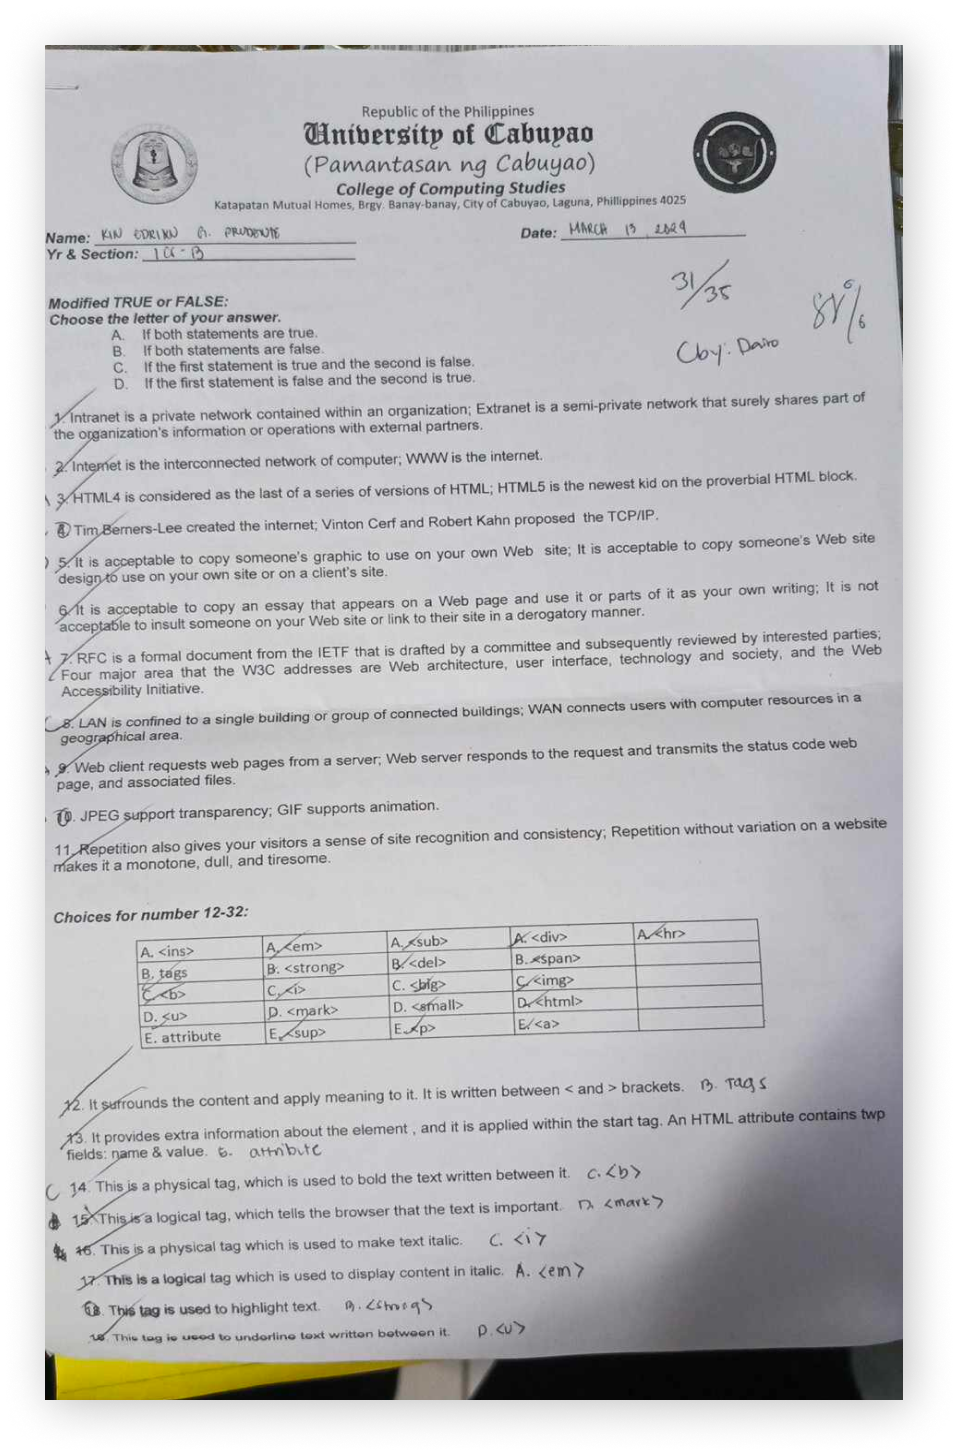 Republic of the Philippines
University of Cabuyao
(Pamantasan ng Cabuyao)
College of Computing Studies
Katapatan Mutual Homes, Brgy. Banay-banay, City of Cabuyao, Laguna, Phillippines 4025
Name: KIN EDRIKN G. PRUDENTE
Date: MARCH 13, 2024
Yr & Section: 1 CS - B
31/35
Modified TRUE or FALSE:
Choose the letter of your answer.
Cby: Dairo
A. If both statements are true.
B. If both statements are false.
C. If the first statement is true and the second is false.
D. If the first statement is false and the second is true.
1. Intranet is a private network contained within an organization; Extranet is a semi-private network that surely shares part of
the organization's information or operations with external partners.
2. Internet is the interconnected network of computer; WWW is the internet.
3. HTML4 is considered as the last of a series of versions of HTML; HTML5 is the newest kid on the proverbial HTML block.
4. Tim Berners-Lee created the internet; Vinton Cerf and Robert Kahn proposed the TCP/IP.
5. It is acceptable to copy someone's graphic to use on your own Web site; It is acceptable to copy someone's Web site
design to use on your own site or on a client's site.
6. It is acceptable to copy an essay that appears on a Web page and use it or parts of it as your own writing; It is not
acceptable to insult someone on your Web site or link to their site in a derogatory manner.
7. RFC is a formal document from the IETF that is drafted by a committee and subsequently reviewed by interested parties;
Four major area that the W3C addresses are Web architecture, user interface, technology and society, and the Web
Accessibility Initiative.
8. LAN is confined to a single building or group of connected buildings; WAN connects users with computer resources in a
geographical area.
9. Web client requests web pages from a server; Web server responds to the request and transmits the status code web
page, and associated files.
10. JPEG support transparency; GIF supports animation.
11. Repetition also gives your visitors a sense of site recognition and consistency; Repetition without variation on a website
makes it a monotone, dull, and tiresome.
Choices for number 12-32:
A. <ins> A. <em> A. <sub> A. <div> A. <hr>
B. tags B. <strong> B. <del> B. <span>
C. <b> C. <i> C. <big> C. <img>
D. <u> D. <mark> D. <small> D. <html>
E. attribute E. <sup> E. <p> E. <a>
12. It surrounds the content and apply meaning to it. It is written between < and > brackets. B. Tags
13. It provides extra information about the element , and it is applied within the start tag. An HTML attribute contains twp
fields: name & value. E. attribute
C 14. This is a physical tag, which is used to bold the text written between it. C. <b>
15. This is a logical tag, which tells the browser that the text is important. D. <mark>
16. This is a physical tag which is used to make text italic. C. <i>
17. This is a logical tag which is used to display content in italic. A. <em>
18. This tag is used to highlight text. B. <strong>
19. This tag is used to underline text written between it. D. <u>